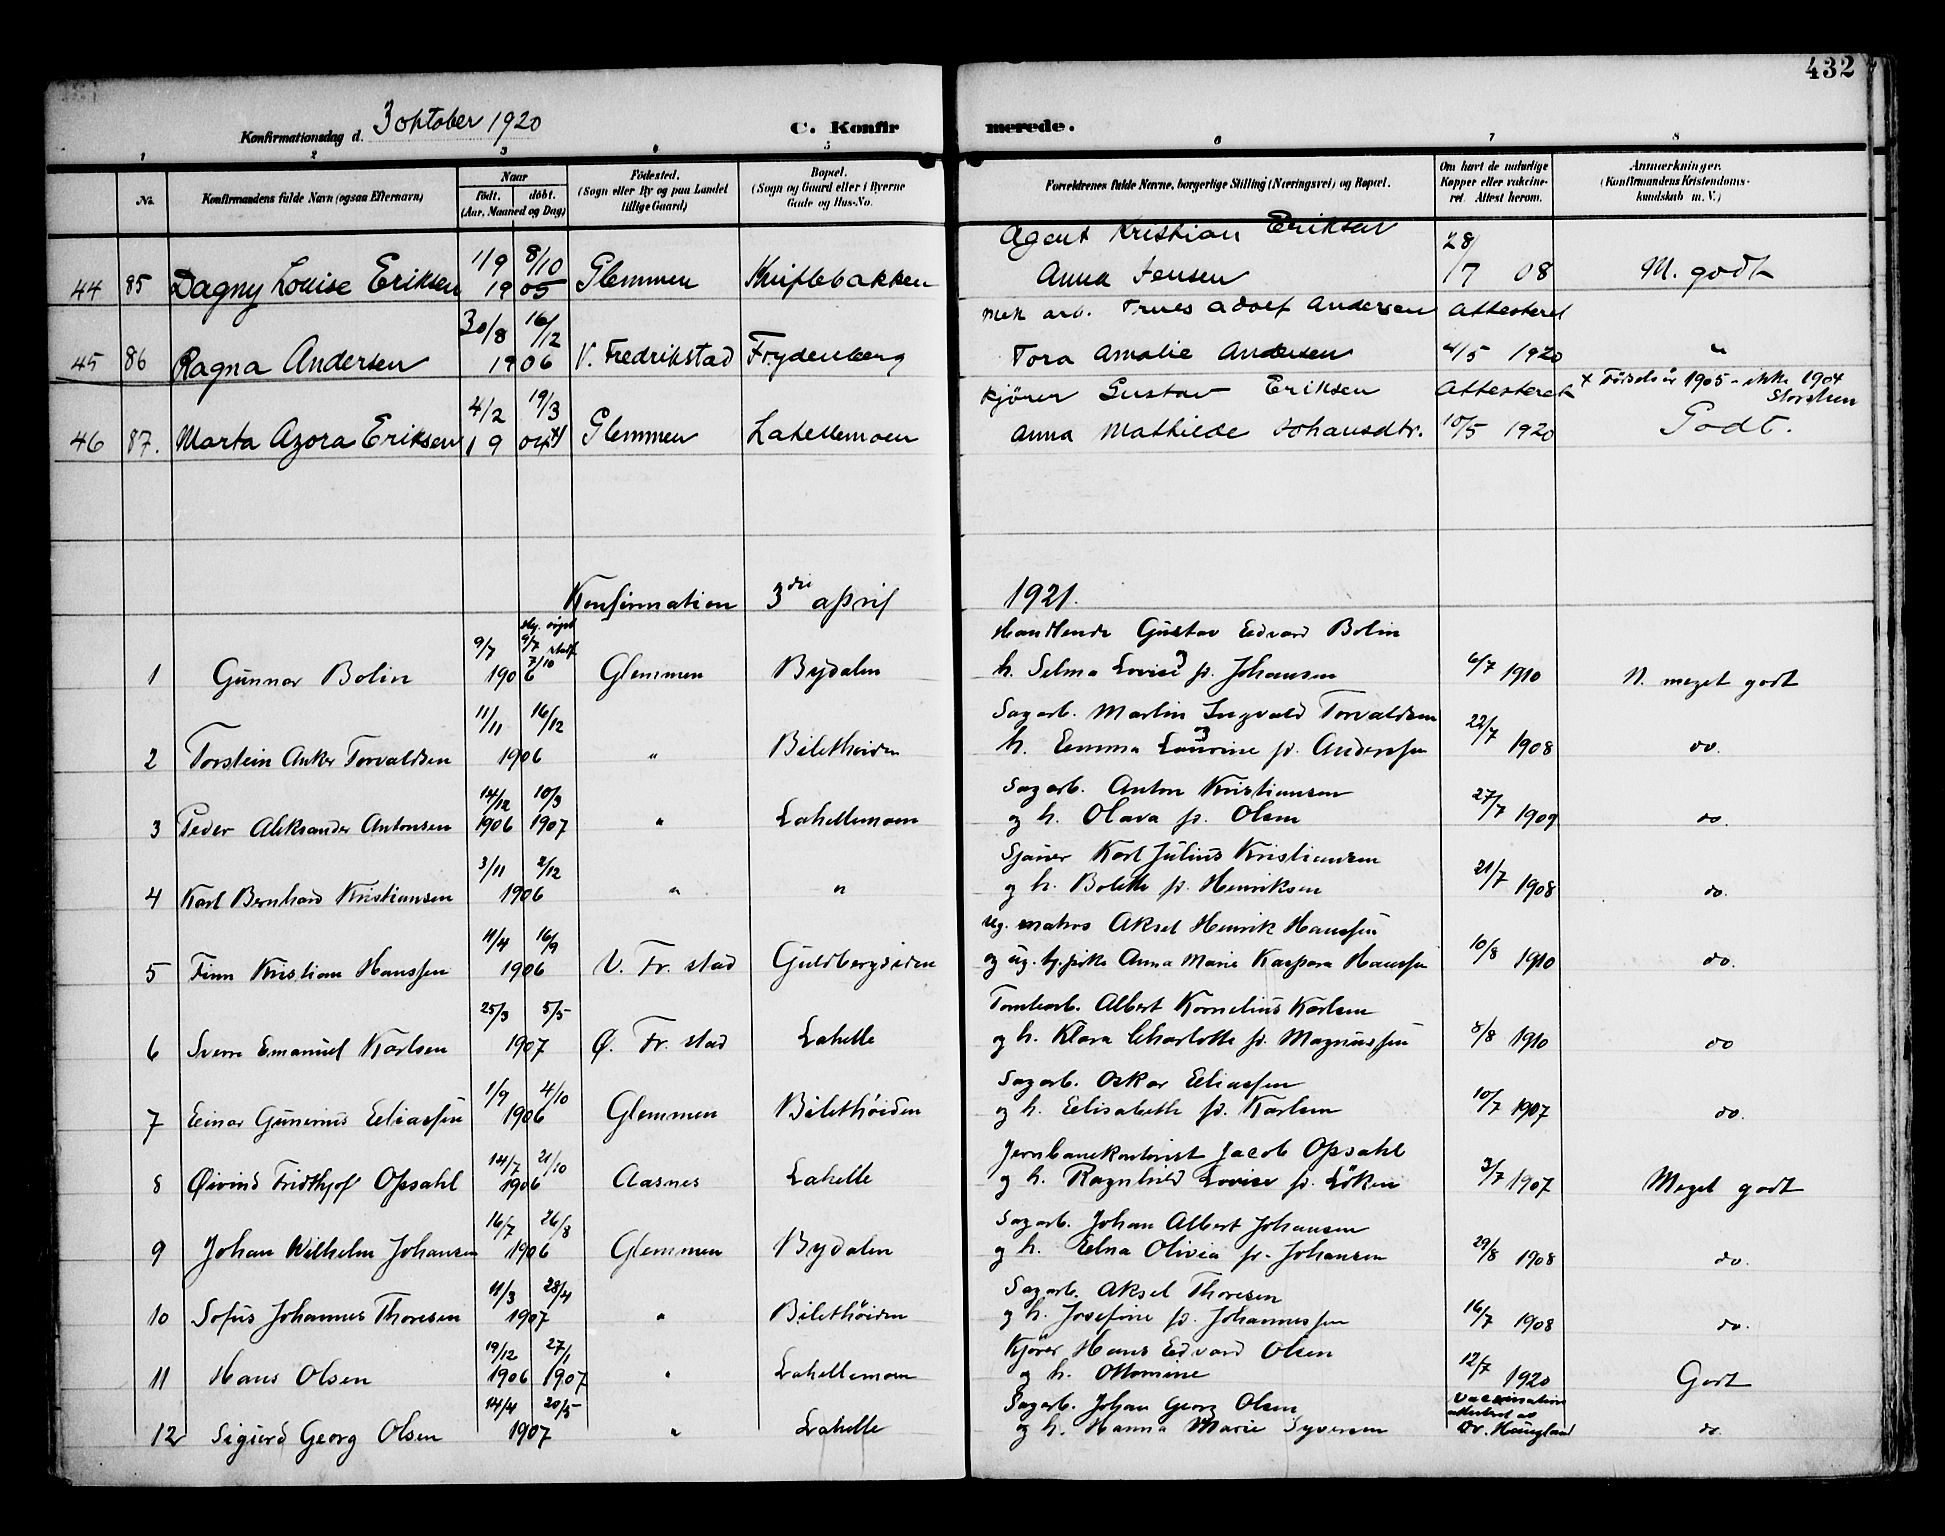 432
Konfirmationsdag d. 3 oktober 1920
C. Konfirmerede.
1 2 3 4 5 6 7 8
No.
Konfirmandens fulde Navn (ogsaa Efternavn)
Naar
født. døbt.
(Aar, Maaned og Dag)
Fødested.
(Sogn eller By og paa Landet tillige Gaard)
Bopæl.
(Sogn og Gaard eller i Byerne Gade og Hus-No.
Forældrenes fulde Navne, borgerlige Stilling (Næringsvei) og Bopæl.
Om havt de naturlige Kopper eller vakcineret. Attest herom.
Anmærkninger.
(Konfirmandens Kristendomskundskab m. V.)
44 85 Dagny Louise Eriksen 1/9 8/10 1905 Glemmen Kniplebakken Agent Kristian Eriksen Anna Jensen 28/7 08 M. godt
45 86 Ragna Andersen 30/8 16/12 1906 V. Fredrikstad Frydenberg Mek arb. Trues Adolf Andersen Tora Amalie Andersen Attesteret 4/5 1920 "
46 87. Marta Azora Eriksen 4/2 19/3 1904 x) Glemmen Lahellemoen Kjører Gustav Eriksen Anna Mathilde Johansdtr. Attesteret 10/5 1920 x Fødselsår 1905 - ikke 1904 Godt.
Konfirmation 3die april 1921.
1 Gunnar Bolin 9/7 9/7 stadf. 7/10 1906 Glemmen Bydalen Handlende Gustav Edvard Bolin h. Selma Lovise f. Johansen 6/7 1910 N. meget godt
2 Torstein Anker Torvaldsen 11/11 16/12 1906 " Bilethøiden Sagarb. Martin Ingvald Torvaldsen h. Emma Laurine f. Anderssen 22/7 1908 do.
3 Peder Aleksander Antonsen 14/12 1906 10/3 1907 " Lahellemoen Sagarb. Anton Kristiansen og h. Olava f. Olsen 27/7 1909 do.
4 Karl Bernhard Kristiansen 3/11 2/12 1906 " " Sjauer Karl Julius Kristiansen og h. Bolette f. Henriksen 21/7 1908 do.
5 Finn Kristian Hanssen 11/4 16/9 1906 V. Fr. stad Guldbergsiden ug. matros Aksel Henrik Hanssen og ug. tj.pike Anna Marie Kaspara Hanssen 10/8 1910 do.
6 Sverre Emanuel Karlsen 25/3 5/5 1907 Ø. Fr. stad Lahelle Tomtearb. Albert Kornelius Karlsen og h. Klara Charlotte f. Magnussen 8/8 1910 do
7 Einar Gunerius Eliassen 1/9 4/10 1906 Glemmen Bilethøiden Sagarb. Oskar Eliassen og h. Elisabeth f. Karlsen 10/7 1907 do.
8 Øivind Fridthjof Opsahl 14/7 21/10 1906 Aasnes Lahelle Jernbanekontorist Jacob Opsahl og h. Ragnhild Lovise f. Løken 3/7 1907 Meget godt
9 Johan Wilhelm Johansen 16/7 26/8 1906 Glemmen Bydalen Sagarb. Johan Albert Johansen og h. Elna Olivia f. Johansen 29/8 1908 do.
10 Sofus Johannes Thoresen 11/3 28/4 1907 " Bilethöiden Sagarb. Aksel Thoresen og h. Josefine f. Johannessen 16/7 1908 do.
11 Hans Olsen 19/12 1906 27/1 1907 " Lahellemoen Kjører Hans Edvard Olsen og h. Ottomine 12/7 1920 Godt
12 Sigurd Georg Olsen 14/4 20/5 1907 " Lahelle Sagarb. Johan Georg Olsen og h. Hanna Marie Syversen Vaccination attesteret av Dr. Haugland do.